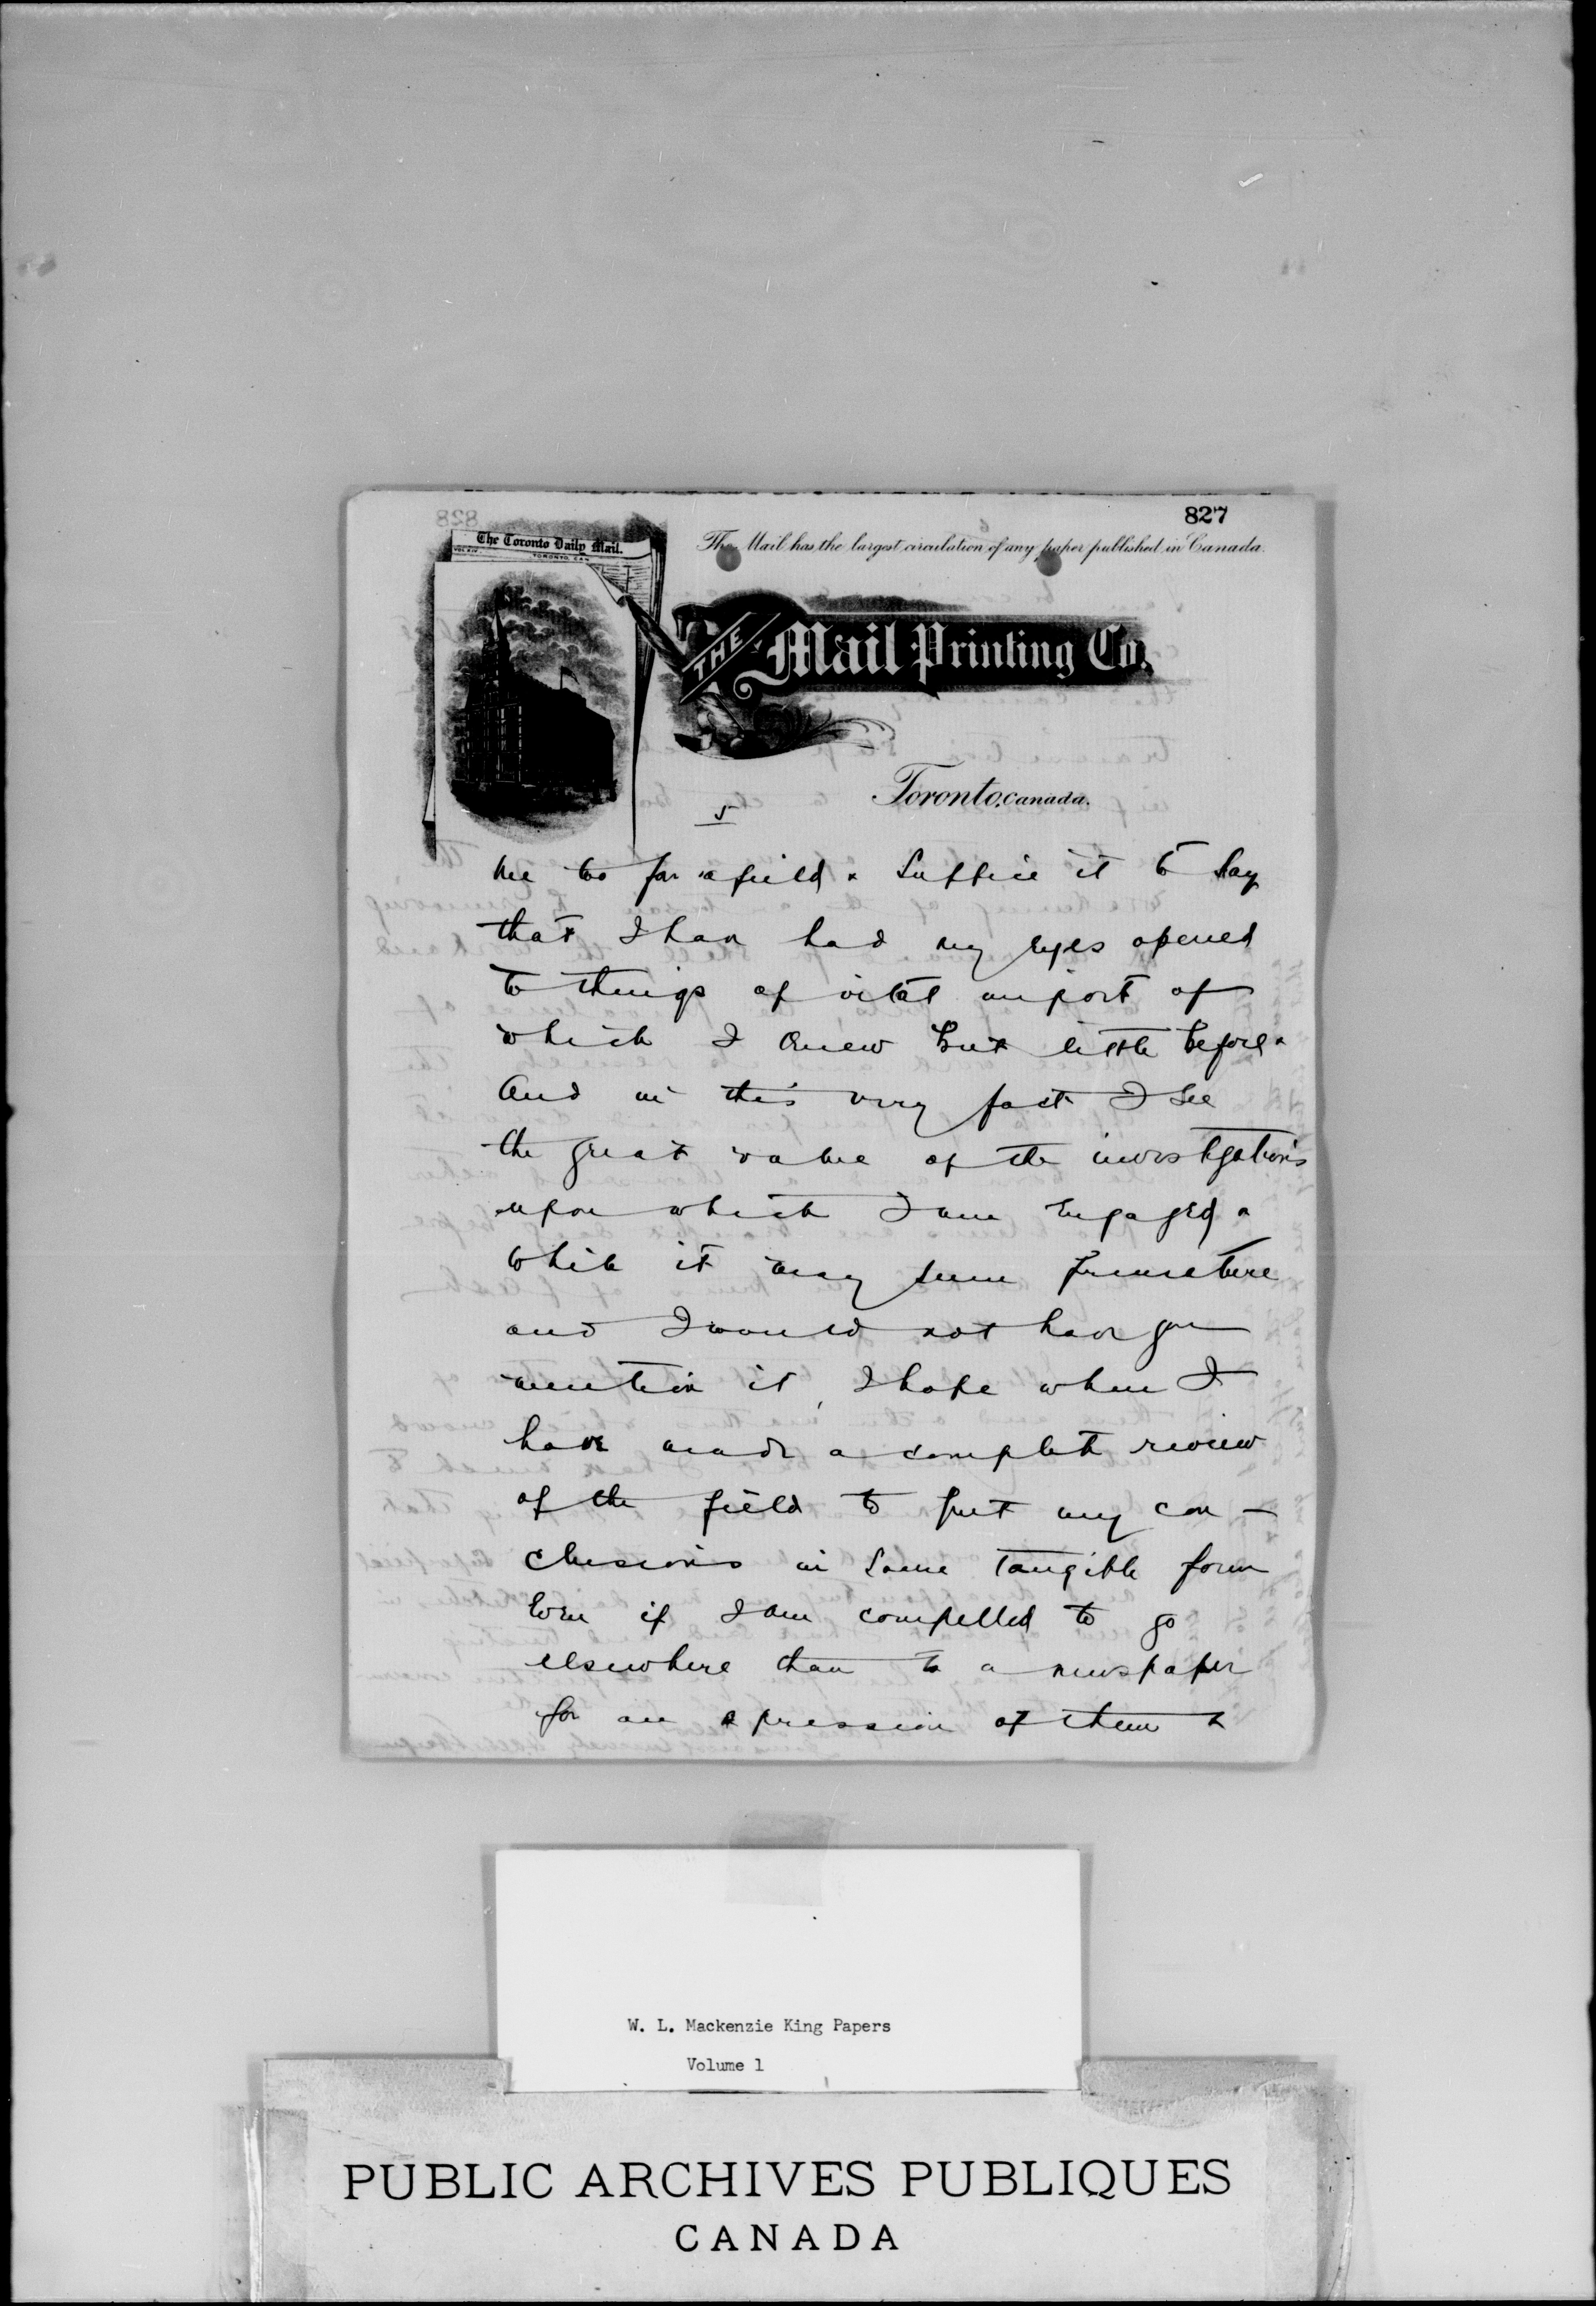 827
The Toronto Daily Mail.
TORONTO, CAN
The Mail has the largest circulation of any paper published in Canada.
THE Mail Printing Co.
Toronto, Canada.
5
me too far afield. Suffice it to say
that I have had my eyes opened
to things of vital import of
which I knew but little before.
And in this very fact I see
the great value of the investigations
upon which I am engaged.
While it may seem premature
and I would not have you
mention it, I hope when I
have made a complete review
of the field to put my con-
clusions in some tangible form
even if I am compelled to go
elsewhere than to a newspaper
for an expression of them.
W. L. Mackenzie King Papers
Volume 1
PUBLIC ARCHIVES PUBLIQUES
CANADA